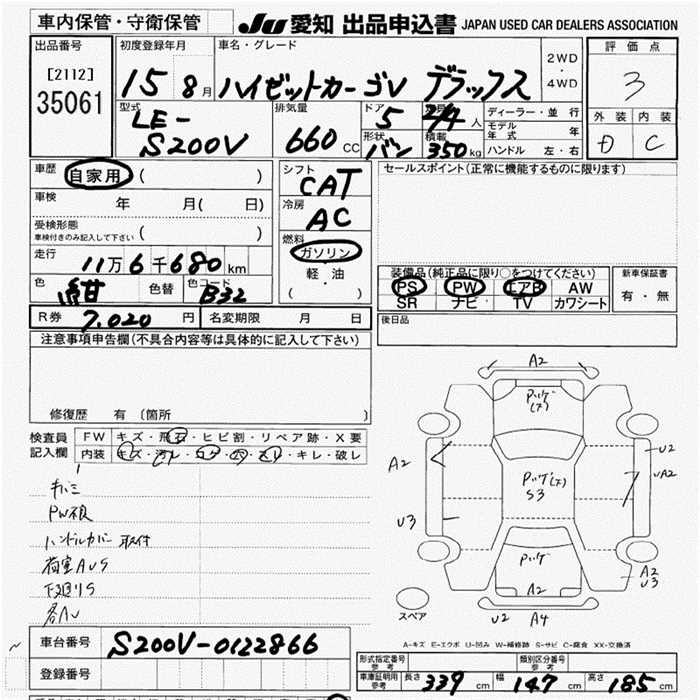 車内保管・守衛保管
JU 愛知 出品申込書 JAPAN USED CAR DEALERS ASSOCIATION
出品番号
[2112]
35061
初度登録年月
15 8月
車名・グレード
ハイゼットカーゴV デラックス
2WD
・
4WD
評価点
3
外装 内装
D C
型式
LE-
S200V
排気量
660 CC
ドア
5
定員
2/4 人
形状
バン
積載
350 kg
ディーラー・並行
モデル年式 年
ハンドル 左・右
車歴 自家用 ( )
車検 年 月( 日)
受検形態
車検付きのみ記入して下さい ( )
走行
11万6千680km
色 紺 色替 色コード B32
シフト
CAT
冷房
AC
燃料
ガソリン
軽・油
( )
セールスポイント(正常に機能するものに限ります)
装備品(純正品に限り○をつけてください)
PS PW エアB AW
SR ナビ TV カワシート
新車保証書
有・無
R券 7.020 円 名変期限 月 日
後日品
注意事項申告欄(不具合内容等は具体的に記入して下さい)
修復歴 有 (箇所 )
検査員記入欄
FW キズ・飛石・ヒビ割・リペア跡・X要
内装 キズ・汚レ・コゲ・穴・スレ・キレ・破レ
キバミ
PW不良
ハンドルカバー取付
荷室AUS
下廻りS
各AU
A2
Pッケ(ス)
A2
Pッケ(ス)
S3
U2
UA2
U3
Pッケ
A2
A2
U3
スペア
U2 A4
A-キズ E-エクボ U-凹み W-補修跡 S-サビ C-腐食 XX-交換済
車台番号 S200V-0122866
登録番号
形式指定番号
参考
類別区分番号
参考
車庫証明用
参考
長さ 339 cm 幅 147 cm 高さ 185 cm